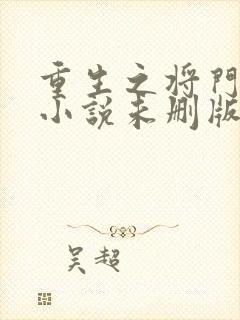 重生之将門
小說未删版
吴超